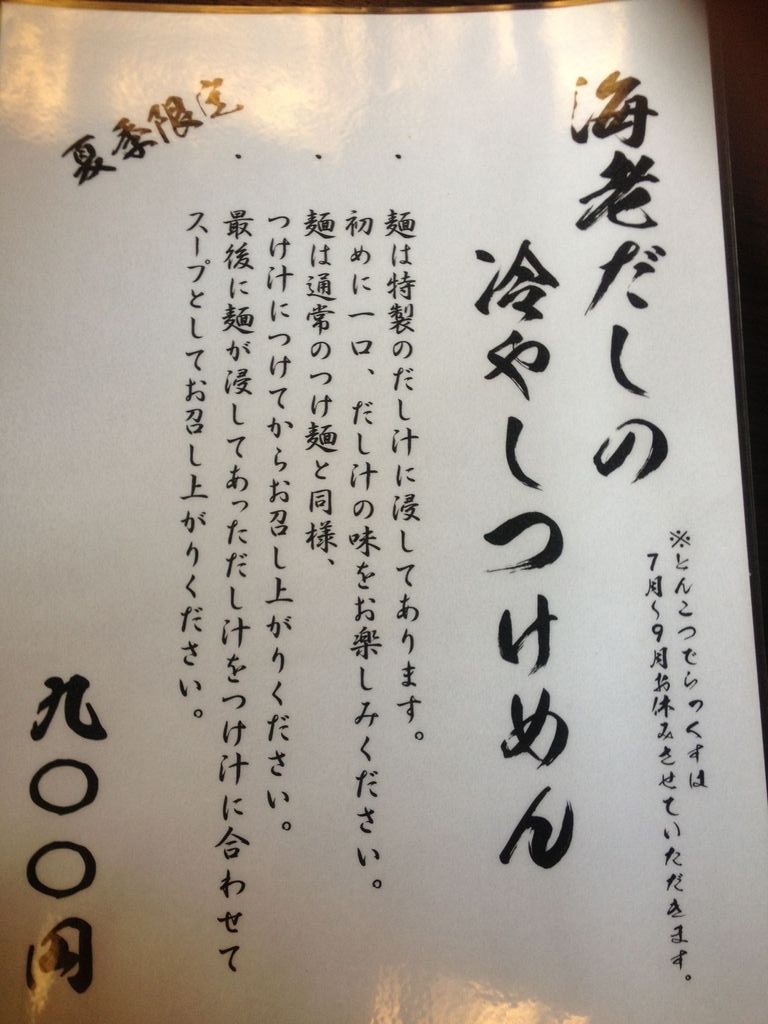 ※とんこつでらっくすは
7月〜9月お休みさせていただきます。
海老だしの
冷やしつけめん
・麺は特製のだし汁に浸してあります。
初めに一口、だし汁の味をお楽しみください。
・麺は通常のつけ麺と同様、
つけ汁につけてからお召し上がりください。
・最後に麺が浸してあっただし汁をつけ汁に合わせて
スープとしてお召し上がりください。
夏季限定
九〇〇円